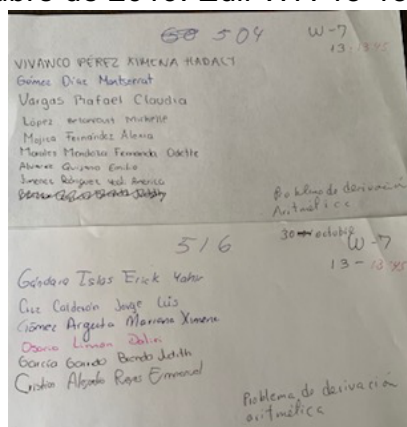 504
W-7
13-1345
VIVANCO PÉREZ XIMENA HADALY
Gómez Díaz Montserrat
Vargas Rafael Claudia
López Michelle
Mojica Fernández Alexia
Morales Mendoza Fernanda Odette
Alvarez Emilio
Jimenez Rodriguez America
Problema de derivación
Aritmética
516
30 octubre
W-7
13-1345
Gándara Islas Erick Yahir
Cruz Calderón Jorge Luis
Gómez Argueta Mariana Ximena
Osorio Dalin
García Garrido Brenda Judith
Cristian Alejandro Reyes Emmanuel
Problema de derivación
aritmética